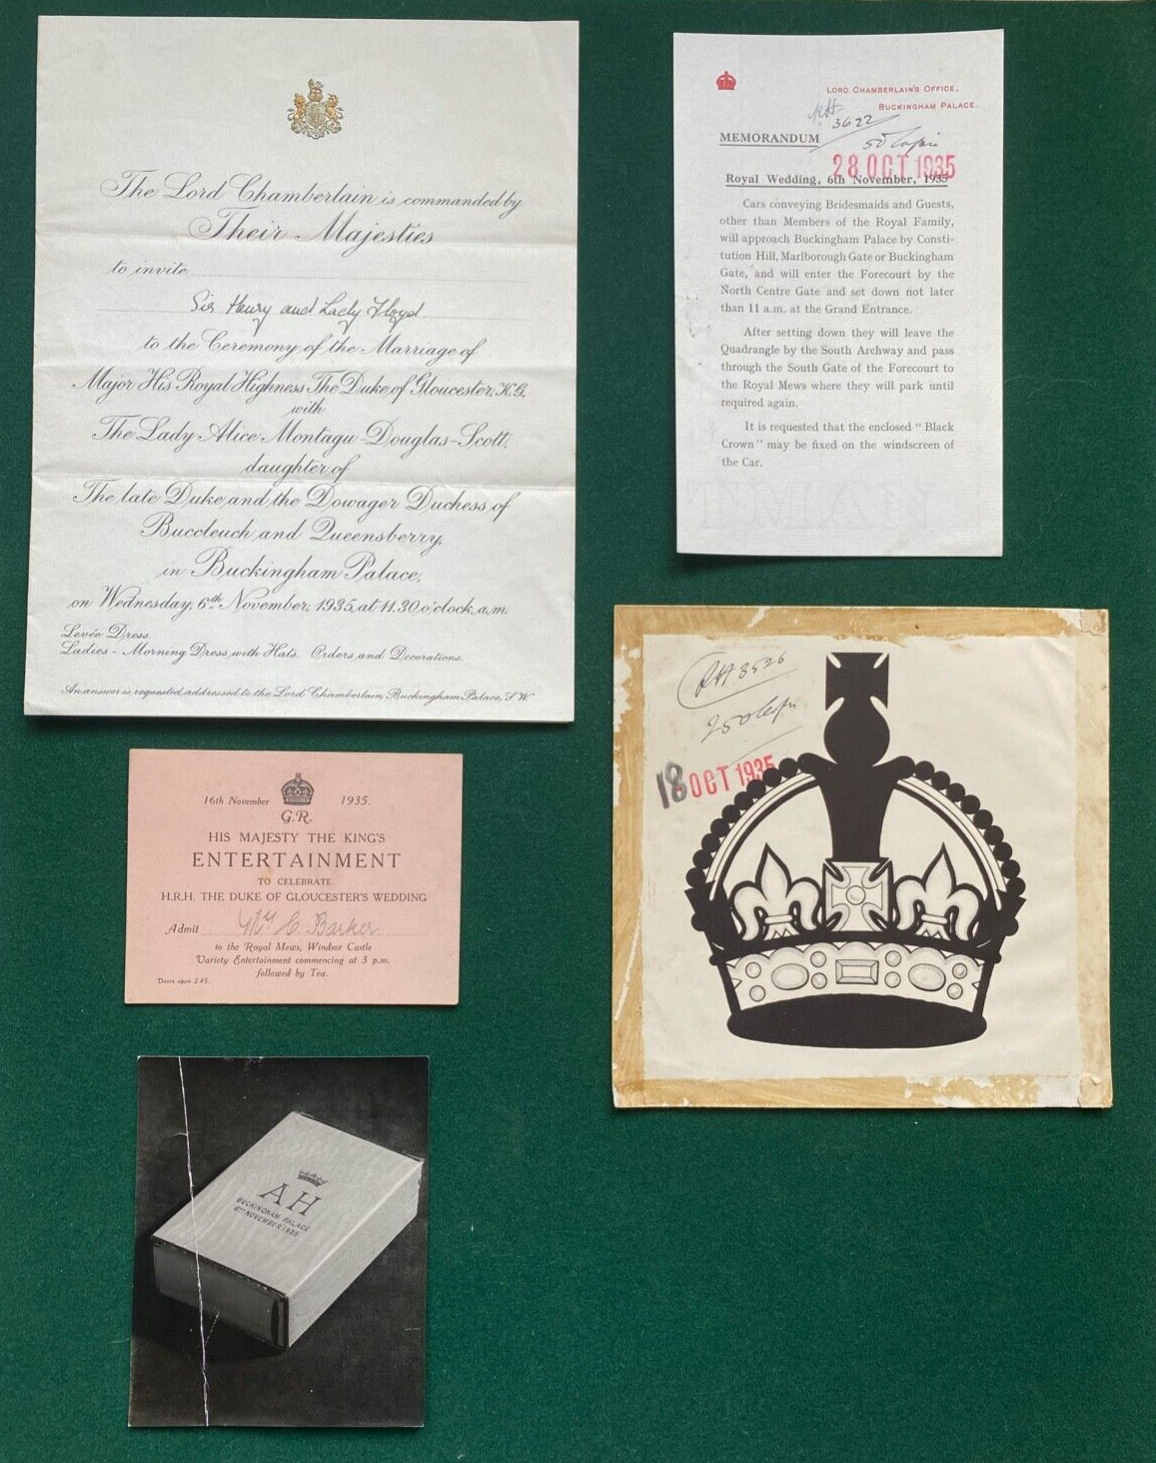 The Lord Chamberlain is commanded by
Their Majesties
to invite
Sir Henry and Lady Floyd
to the Ceremony of the Marriage of
Major His Royal Highness The Duke of Gloucester, K.G.
with
The Lady Alice Montagu-Douglas-Scott,
daughter of
The late Duke and the Dowager Duchess of
Buccleuch and Queensberry,
in Buckingham Palace,
on Wednesday, 6th November, 1935, at 11.30 o'clock, a.m.
Levée Dress.
Ladies - Morning Dress, with Hats. Orders, and Decorations.
An answer is requested addressed to the Lord Chamberlain, Buckingham Palace, S.W.
LORD CHAMBERLAIN'S OFFICE,
BUCKINGHAM PALACE.
3622
MEMORANDUM
50
28 OCT 1935
Royal Wedding, 6th November, 1935
Cars conveying Bridesmaids and Guests,
other than Members of the Royal Family,
will approach Buckingham Palace by Consti-
tution Hill, Marlborough Gate or Buckingham
Gate, and will enter the Forecourt by the
North Centre Gate and set down not later
than 11 a.m. at the Grand Entrance.
After setting down they will leave the
Quadrangle by the South Archway and pass
through the South Gate of the Forecourt to
the Royal Mews where they will park until
required again.
It is requested that the enclosed "Black
Crown" may be fixed on the windscreen of
the Car.
16th November 1935.
G.R.
HIS MAJESTY THE KING'S
ENTERTAINMENT
TO CELEBRATE
H.R.H. THE DUKE OF GLOUCESTER'S WEDDING
Admit C. Barker
to the Royal Mews, Windsor Castle
Variety Entertainment commencing at 3 p.m.
followed by Tea.
Doors open 2.45.
3526
250
18 OCT 1935
AH
BUCKINGHAM PALACE
6TH NOVEMBER 1935